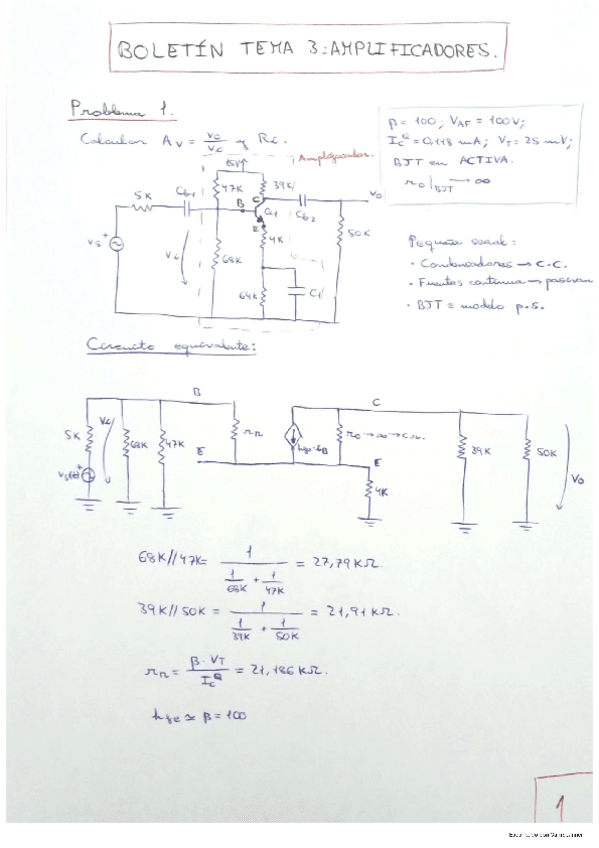 BOLETÍN TEMA 3: AMPLIFICADORES.
Problema 1.
Calcular Av = vo/vi y Ri.
β = 100; VAF = 100V;
IcQ = 0,118 mA; VT = 25 mV;
BJT en ACTIVA.
ro|BJT → ∞
Amplificador.
15V
47K
39K
5K
Cb1
B
C
Q1
E
Cb2
vo
vs
+
vi
68K
4K
64K
C1
50K
Pequeña señal:
· Condensadores → C.C.
· Fuentes continua → pasivan
· BJT ≡ modelo p.s.
Circuito equivalente:
B
C
5K
vi
68K
47K
rπ
E
hfe·ib
ro → ∞ → c.a.
E
4K
39K
50K
vo
vs(t)
+
68K//47K = 1/(1/68K + 1/47K) = 27,79 KΩ.
39K//50K = 1/(1/39K + 1/50K) = 21,91 KΩ.
rπ = β·VT/IcQ = 21,186 KΩ.
hfe ≈ β = 100
1